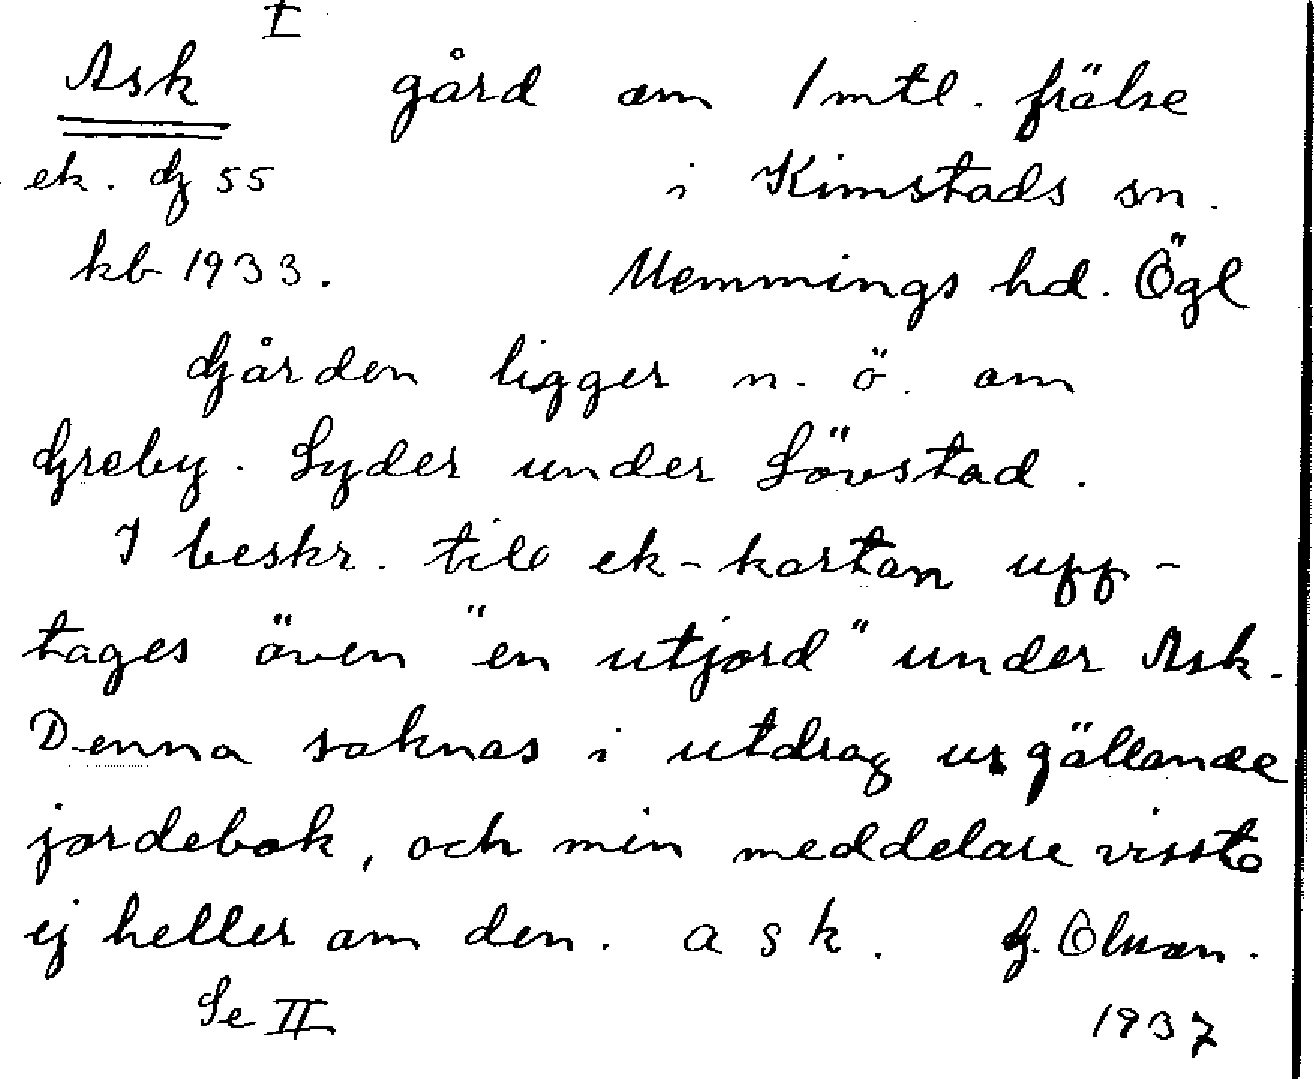 I
Ask gård om 1 mtl. frälse
ek. G 55 i Kimstads sn.
kb 1933. Memmings hd. Ögl
Gården ligger n. ö. om
Greby. Lyder under Lövstad.
I beskr. till ek-kartan upp-
tages även "en utjord" under Ask.
Denna saknas i utdrag ur gällande
jordebok, och min meddelare visste
ej heller om den. a s k. G. Olson.
Se II 1937